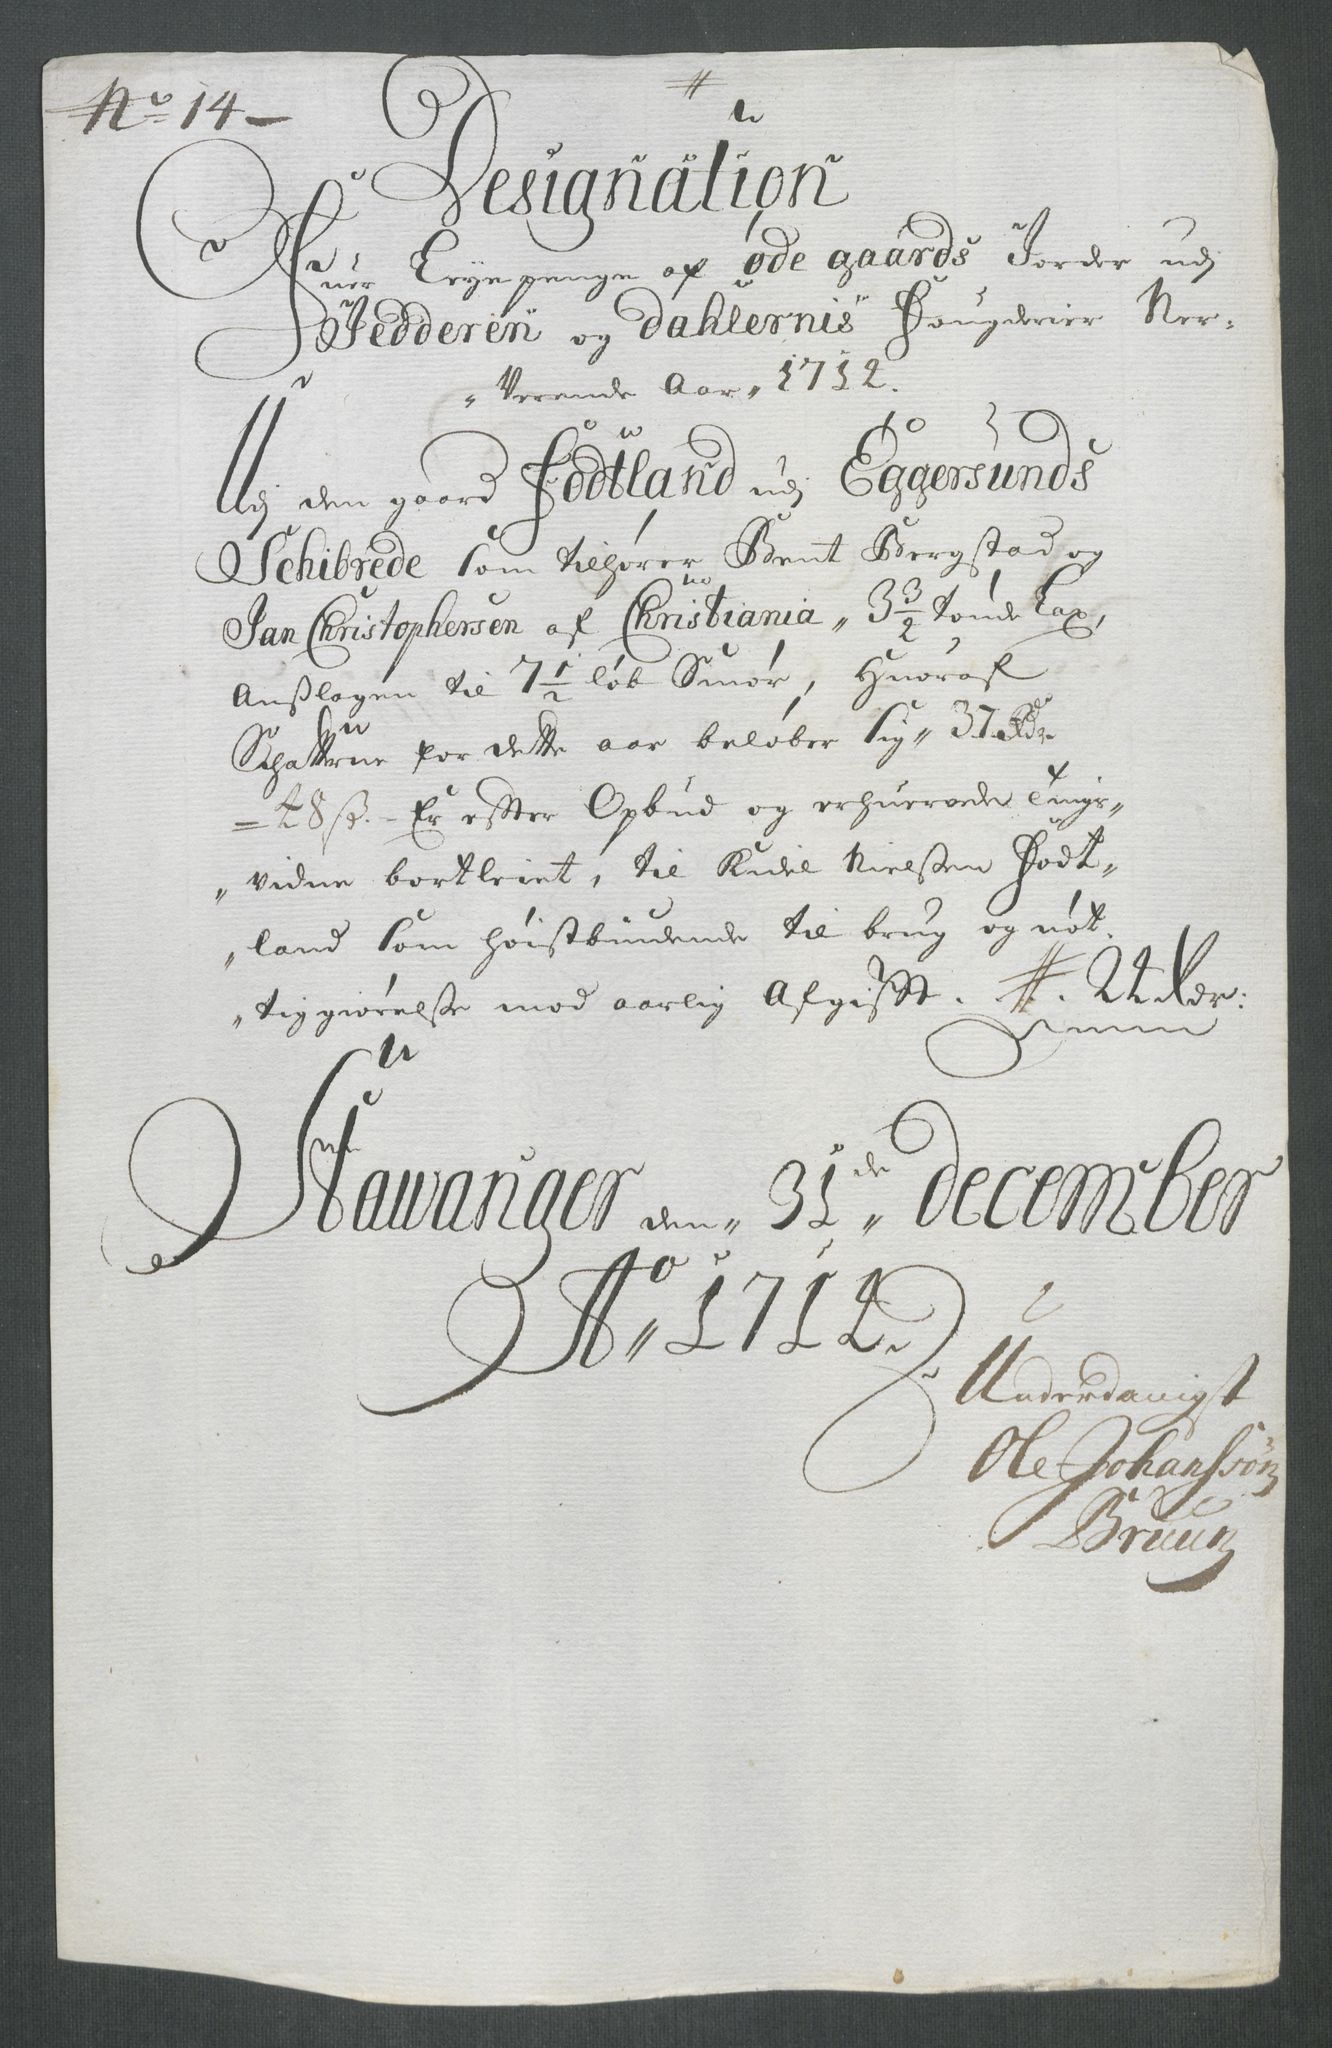 No 14
Designation
Ofuer Leyepenge af øde gaards Jorder udj
Jedderen og Dahlernis Fougderier Ner-
Verende Aar 1712.
Udj den gaard Fodtland udj Eggersunds
Schibrede som tilhører Bent Bergstad og
Jan Christophersen af Christiania, 3 3/2 tønde Lax,
Anslagen til 7 1/2 løb Smør, Huoraf
Schatterne for dette aar beløber sig 37 Rdr
48 s. Er efter Opbud og erhuervede Tings-
vidne bortleiet, til Kidel Nielssen Fodt-
land som høistbudende til brug og nøt-
tiggiørelsse mod aarlig Afgifft. 22 Rdr:
Stawanger den 31de December
Ao 1712.
Underdanigst
Ole Johanssøn
Bruun